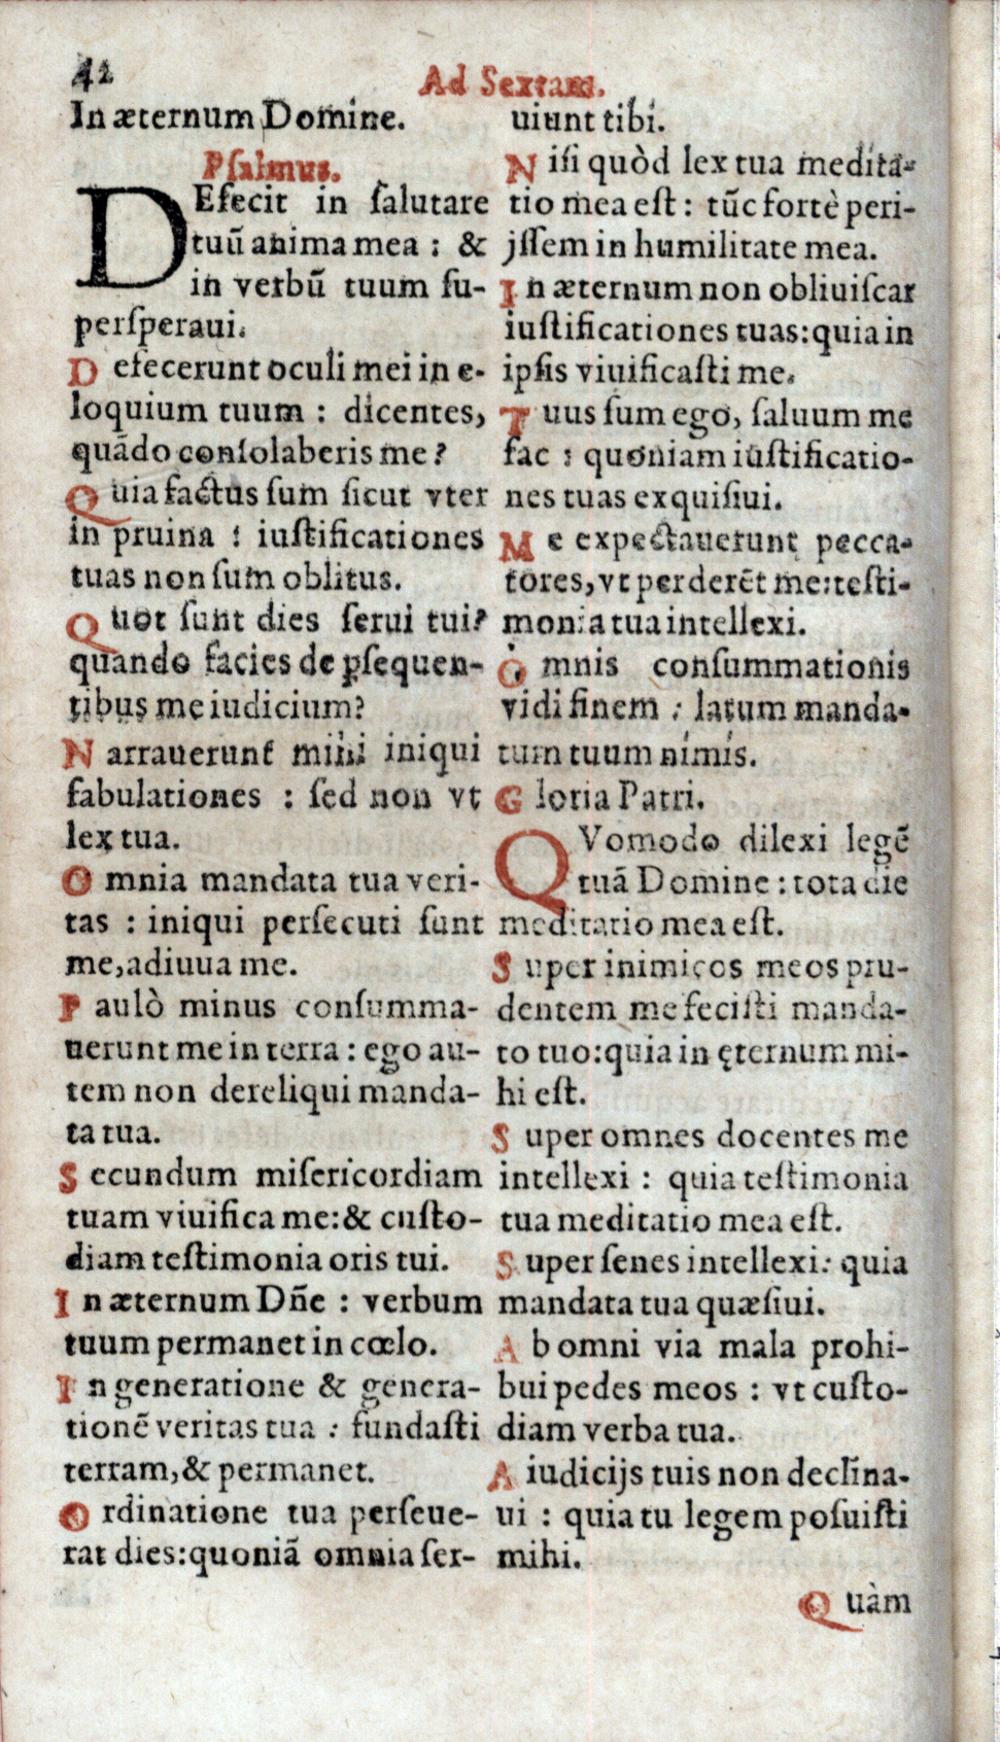 42
Ad Sextam.
In æternum Domine.
Psalmus.
DEfecit in ſalutare
tuũ anima mea : &
in verbũ tuum ſu-
perſperaui.
Defecerunt oculi mei in e-
loquium tuum : dicentes,
quãdo conſolaberis me ?
Quia factus ſum ſicut vter
in pruina : iuſtificationes
tuas non ſum oblitus.
Quot ſunt dies ſerui tui?
quando facies de ꝑſequen-
tibus me iudicium?
Narrauerunt mihi iniqui
fabulationes : ſed non vt
lex tua.
Omnia mandata tua veri-
tas : iniqui perſecuti ſunt
me, adiuua me.
Paulò minus conſumma-
uerunt me in terra : ego au-
tem non dereliqui manda-
ta tua.
Secundum miſericordiam
tuam viuifica me: & cuſto-
diam teſtimonia oris tui.
In æternum Dñe : verbum
tuum permanet in cœlo.
In generatione & genera-
tionẽ veritas tua : fundaſti
terram, & permanet.
Ordinatione tua perſeue-
rat dies: quoniã omnia ſer-
uiunt tibi.
Niſi quòd lex tua medita-
tio mea eſt : tũc fortè peri-
jſſem in humilitate mea.
In æternum non obliuiſcar
iuſtificationes tuas: quia in
ipſis viuificaſti me.
Tuus ſum ego, ſaluum me
fac : quoniam iuſtificatio-
nes tuas exquiſiui.
Me expectauerunt pecca-
tores, vt perderẽt me: teſti-
monia tua intellexi.
Omnis conſummationis
vidi finem : latum manda-
tum tuum nimis.
Gloria Patri.
QVomodo dilexi legẽ
tuã Domine : tota die
meditatio mea eſt.
Super inimicos meos pru-
dentem me feciſti manda-
to tuo: quia in ęternum mi-
hi eſt.
Super omnes docentes me
intellexi : quia teſtimonia
tua meditatio mea eſt.
Super ſenes intellexi: quia
mandata tua quæſiui.
Ab omni via mala prohi-
bui pedes meos : vt cuſto-
diam verba tua.
A iudicijs tuis non declina-
ui : quia tu legem poſuiſti
mihi.
Quàm